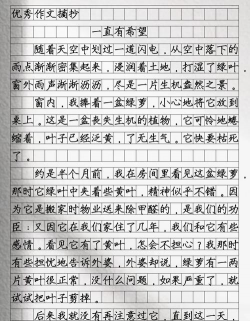 优秀作文摘抄
一直有希望
随着天空中划过一道闪电，从空中落下的
雨点渐渐密集起来，浸润着土地，打湿了绿叶，
窗外雨声渐渐沥沥，尽是一片生机盎然之景。
窗内，我捧着一盆绿萝，小心地将它放到
桌上。这是一盆丧失生机的植物，它可怜地蜷
缩着，叶子已经泛黄，了无生气。它快要枯死
了。
约是半个月前，我在房间里看见这盆绿萝，
那时它绿叶中夹着些黄叶，精神似乎不错，因
为它是搬家时物业送来除甲醛的，是我们的功
臣；又因它在我们家住了几年，我们和它有些
感情，看见它有了黄叶，怎会不担心？我那时
有些担忧地告诉外婆，外婆却说，绿萝有一两
片黄叶很正常，没什么问题，如果严重了，就
试试把叶子剪掉。
后来我就没有再注意过它，直到这一天，